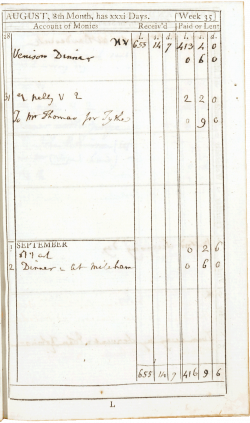 AUGUST, 8th Month, has xxxi Days. (Week 35)
Account of Monies Receiv'd Paid or Lent
l. s. d. l. s. d.
28 655 14 7 413 4 0
Venison Dinner 0 6 0
31 2 2 0
To Mr Thomas for Tythe 0 9 0
1 SEPTEMBER 0 2 6
2 Dinner at Mitcham 0 6 0
655 14 7 416 9 6
I.